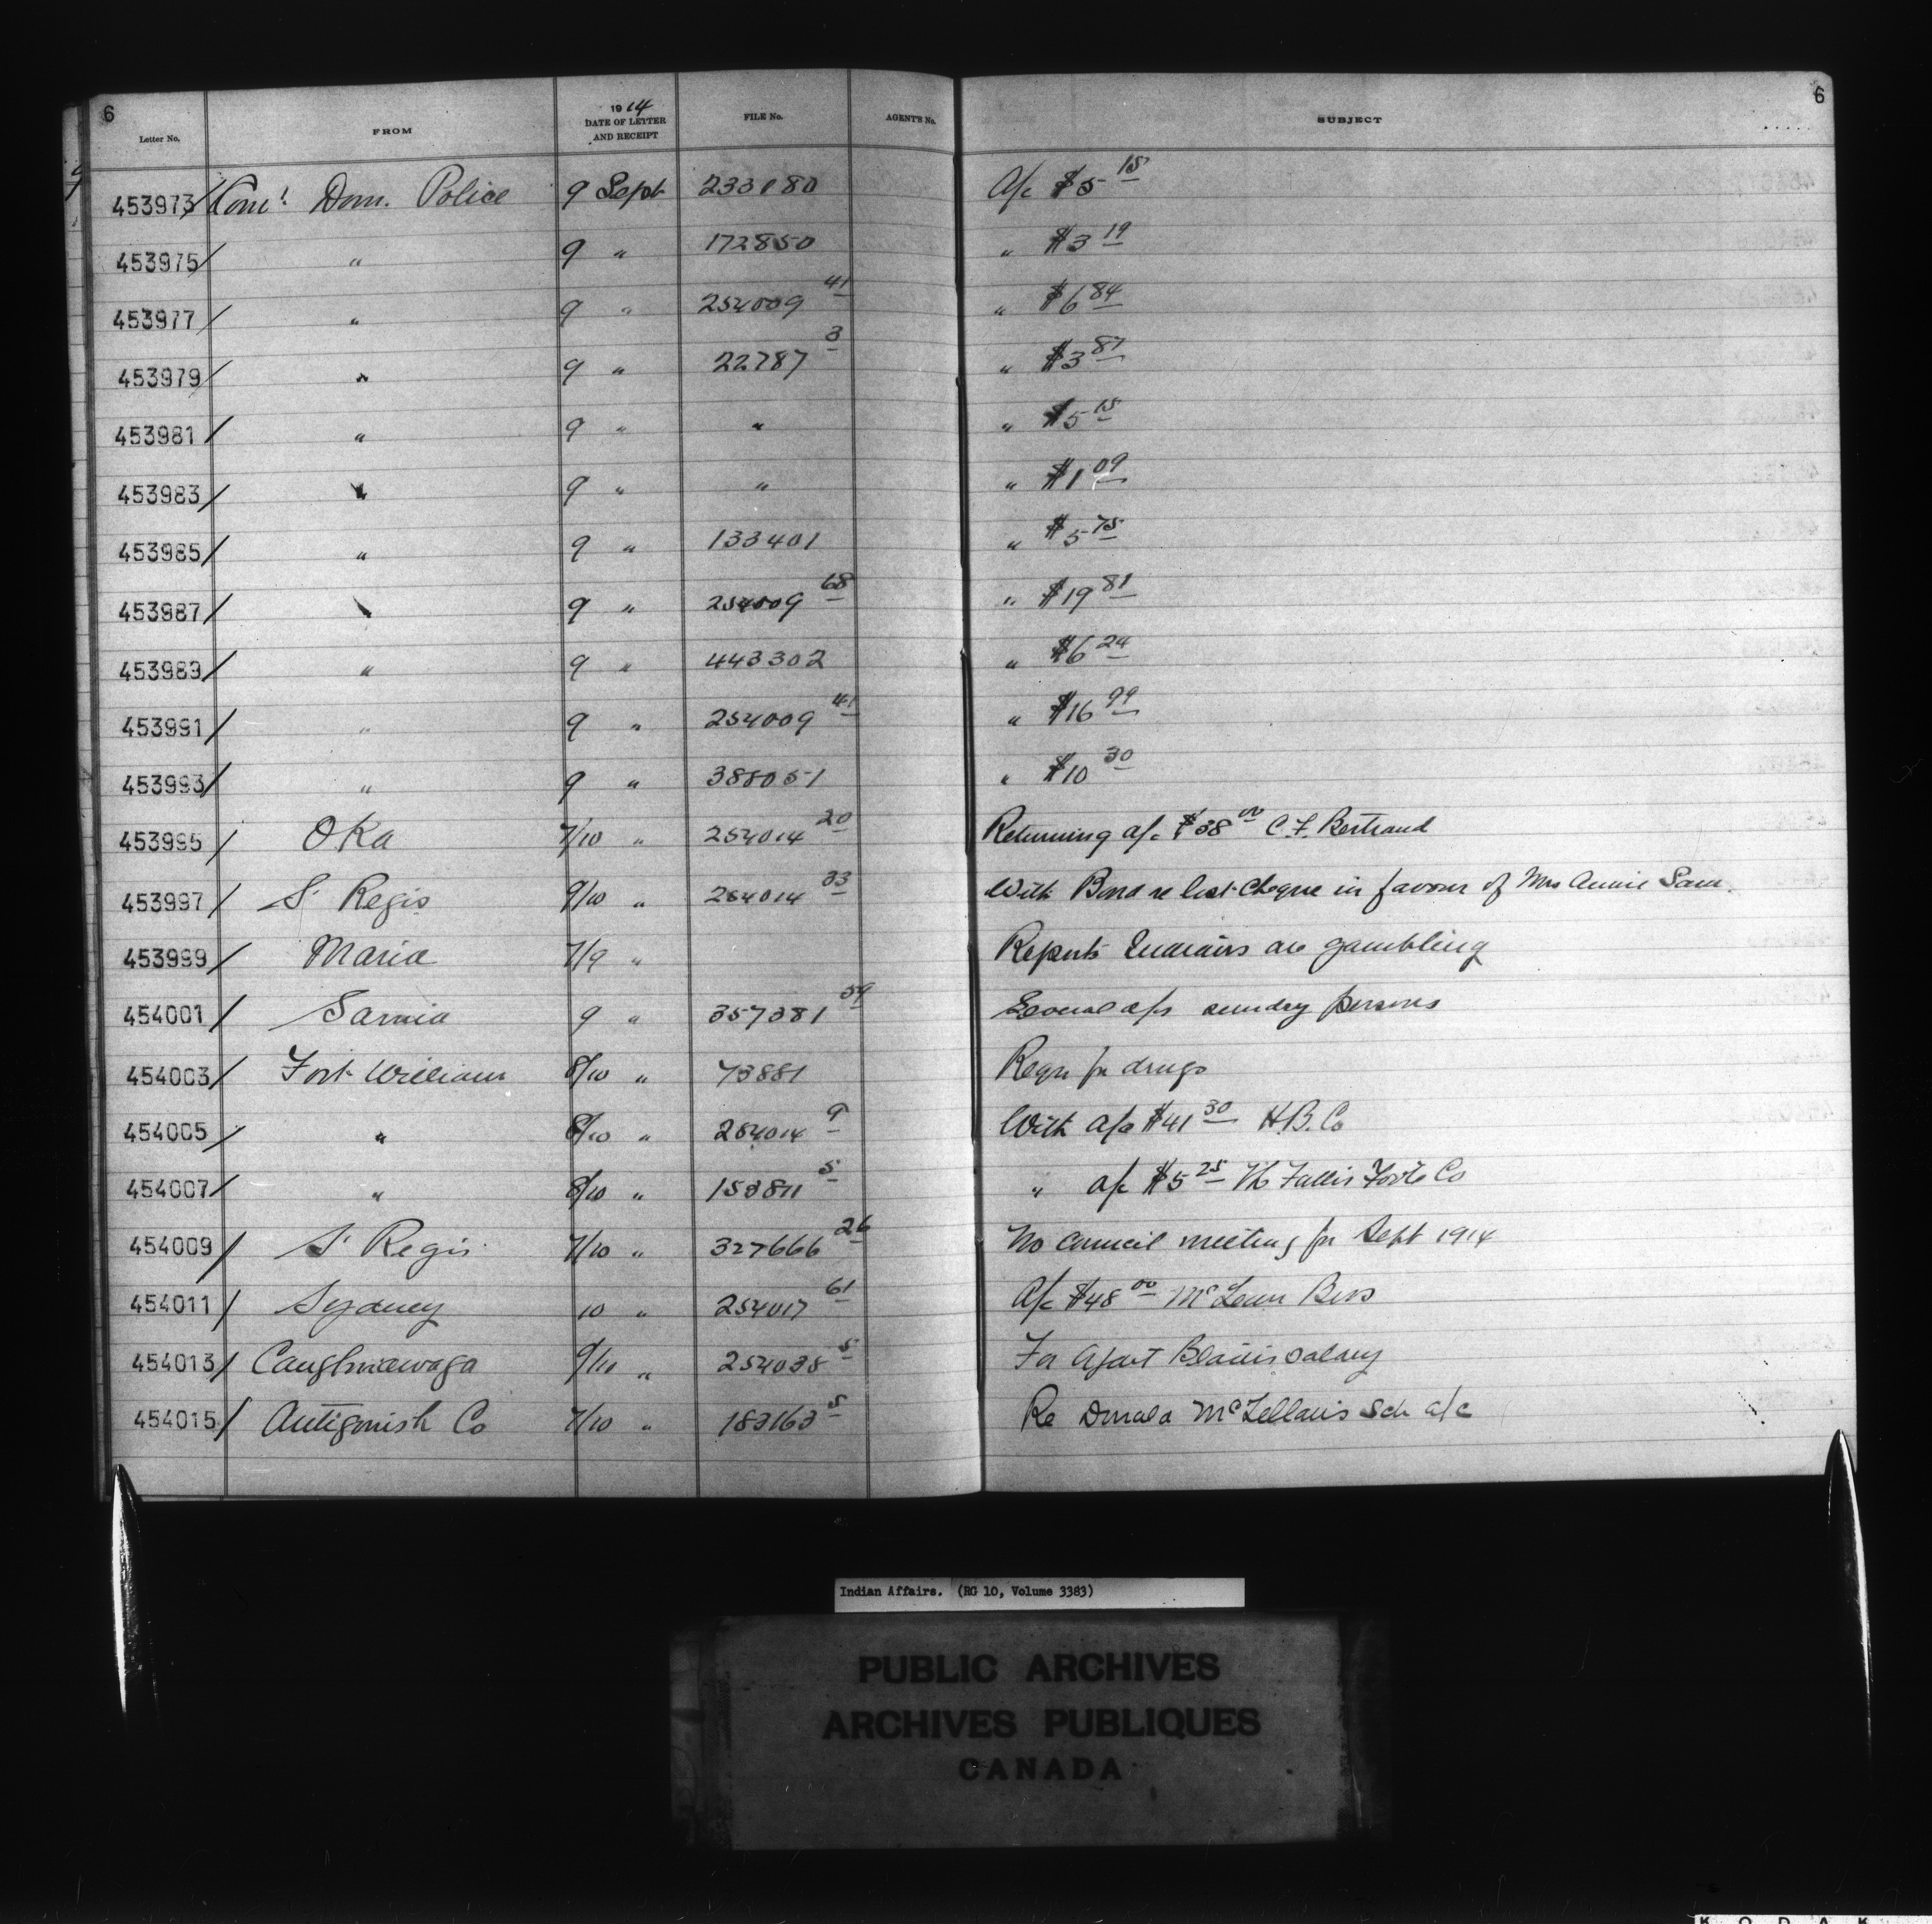 6 6
Letter No. FROM 1914 DATE OF LETTER AND RECEIPT FILE No. AGENT'S No. SUBJECT
453973/ Comr Dom. Police 9 Sept 233180 A/c $5 15
453975/ " 9 " 172850 " $3 19
453977/ " 9 " 254009 41 " $6 84
453979/ " 9 " 22787 3 " $3 87
453981/ " 9 " " " $5 15
453983/ " 9 " " " $1 09
453985/ " 9 " 133401 " $5 75
453987/ " 9 " 254009 68 " $19 81
453989/ " 9 " 443302 " $6 24
453991/ " 9 " 254009 41 " $16 99
453993/ " 9 " 388051 " $10 30
453995/ Oka 7/10 " 254014 20 Returning a/c $38 00 C. F. Bertrand
453997/ St Regis 9/10 " 254014 33 With Bond re lost cheque in favour of Mrs Annie Sam.
453999/ Maria 7/9 " Reports Indians are gambling
454001/ Sarnia 9 " 357381 59 Several a/cs sundry persons
454003/ Fort William 8/10 " 73881 Requ for drugs
454005/ " 8/10 " 254014 9 With a/c $41 30 H.B. Co
454007/ " 8/10 " 153811 5 " a/c $5 25 Fallis Co
454009/ St Regis 7/10 " 327666 26 No council meeting for Sept 1914
454011/ Sydney 10 " 254017 61 A/c $48 00 Bros
454013/ Caughnawaga 9/10 " 254038 5 For Agent Blain's salary
454015/ Antigonish Co 7/10 " 183163 5 Re Donald McLellan's Sch a/c
Indian Affairs. (RG 10, Volume 3383)
PUBLIC ARCHIVES
ARCHIVES PUBLIQUES
CANADA
KODAK